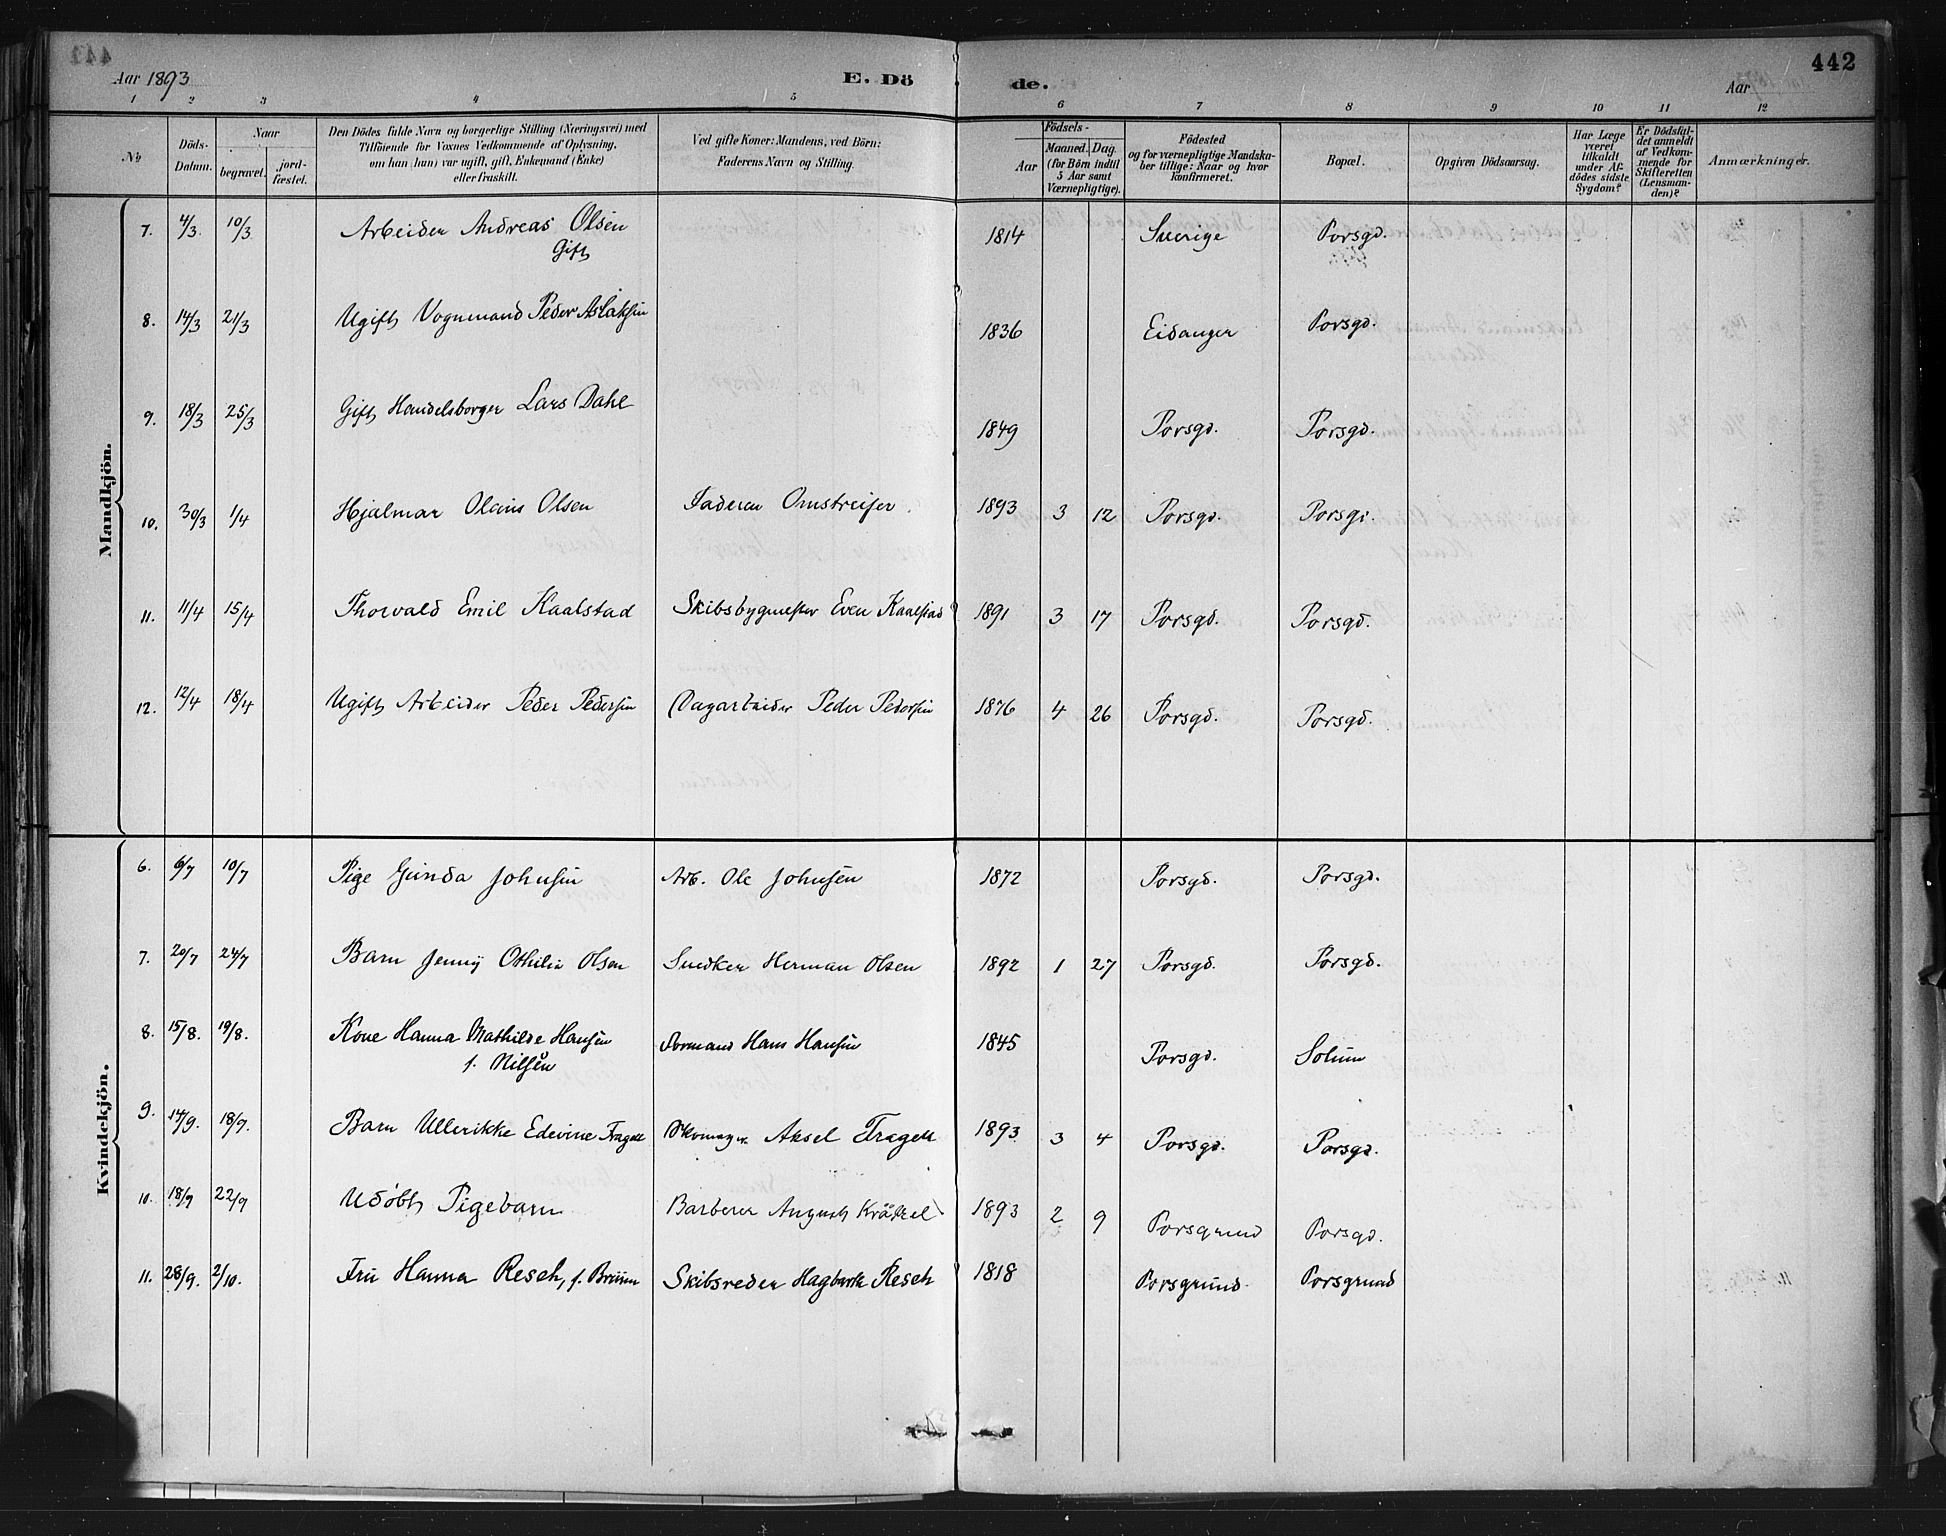 Aar 1893
E. Dö
de.
442
Aar
1 2 3 4 5 6 7 8 9 10 11 12
No
Döds-
Datum.
Naar
begravet.
jord-
fæstet.
Den Dödes fulde Navn og borgerlige Stilling (Næringsvei) med
Tilföiende for Voxnes Vedkommende af Oplysning,
om han (hun) var ugift, gift, Enkemand (Enke)
eller fraskilt.
Ved gifte Koner: Mandens, ved Börn:
Faderens Navn og Stilling.
Födsels-
Aar
Maaned. Dag.
(for Börn indtil
5 Aar samt
Værnepligtige).
Födested
og for værnepligtige Mandska-
ber tillige: Naar og hvor
konfirmeret.
Bopæl.
Opgiven Dödsaarsag.
Har Læge
været
tilkaldt
under Af-
dödes sidste
Sygdom?
Er Dödsfal-
det anmeldt
af Vedkom-
mende for
Skifteretten
(Lensman-
den)?
Anmærkninger.
Mandkjön.
7. 4/3. 10/3 Arbeider Andreas Olsen 1814 Sverige Porsgd.
Gift
8. 14/3 21/3 Ugift Vognmand Peder Aslaksen 1836 Eidanger Porsgd.
9. 18/3 25/3 Gift Handelsborger Lars Dahl 1849 Porsgd. Porsgd.
10. 30/3 1/4 Hjalmar Olaus Olsen Faderen Omstreifer. 1893 3 12 Porsgd. Porsgd.
11. 11/4 15/4 Thorvald Emil Kaalstad Skibsbygmester Even Kaalstad 1891 3 17 Porsgd. Porsgd.
12. 12/4 18/4 Ugift Arbeider Peder Pedersen Dagarbeider Peder Pedersen 1876 4 26 Porsgd. Porsgd.
Kvindekjön.
6. 6/7 10/7 Pige Gunda Johnsen Arb. Ole Johnsen 1872 Porsgd. Porsgd.
7. 20/7 24/7 Barn Jenny Othilie Olsen Snedker Herman Olsen 1892 1 27 Porsgd. Porsgd.
8. 15/8. 19/8. Kone Hanna Mathilde Hansen Formand Hans Hansen 1845 Porsgd. Solum
f. Nilsen
9. 14/9. 18/9. Barn Ullerikke Edevine Fragell Aksel Fragell 1893 3 4 Porsgd. Porsgd.
10. 18/9 22/9 Udöbt Pigebarn Barberer August 1893 2 9 Porsgrund Porsgd.
11. 28/9. 2/10. Fru Hanna Resch, f. Bruun Skibsreder Hagbarth Resch 1818 Porsgrund Porsgrund